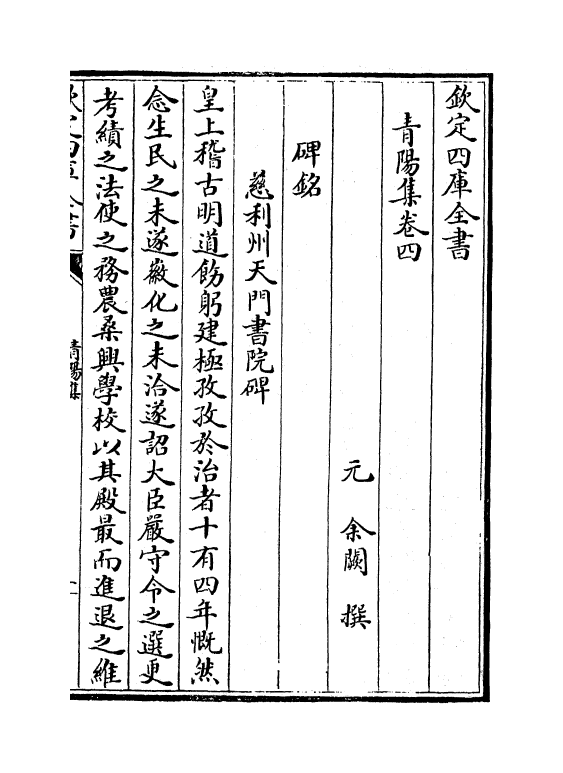 欽定四庫全書
青陽集卷四
元 余闕 撰
碑銘
慈利州天門書院碑
皇上稽古明道飭躬建極孜孜於治者十有四年慨然
念生民之未遂徽化之未洽遂詔大臣嚴守令之選更
考績之法使之務農桑興學校以其殿最而進退之維
青陽集